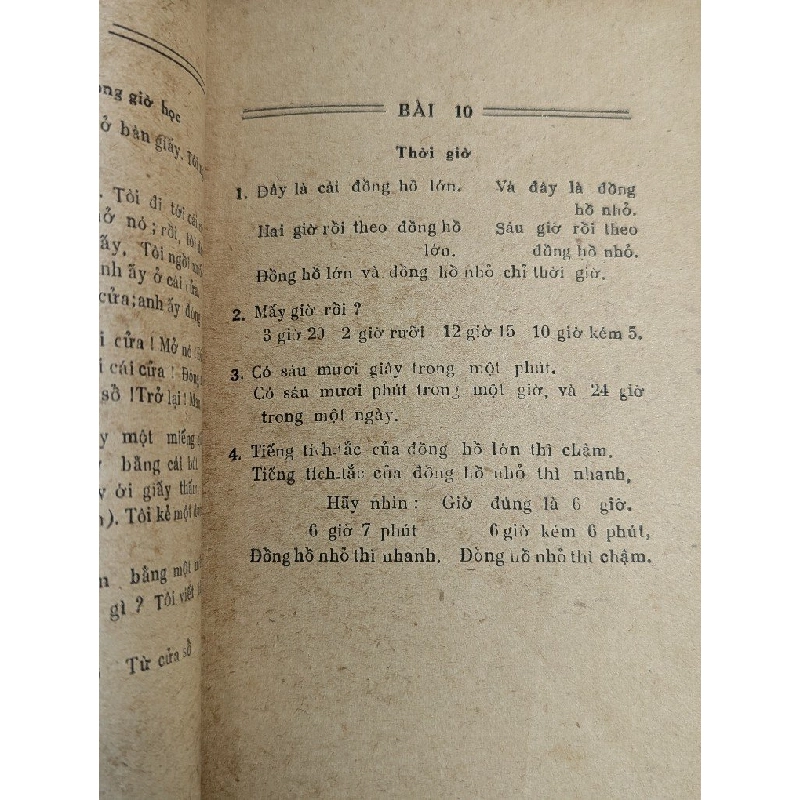 ong giờ học
ở bàn giấy. Tôi
. Tôi đi tới cái
ở nó; rồi, tôi
ấy. Tôi ngồi
anh ấy ở cái cửa.
cửa; anh ấy đóng
i cửa! Mở nó
i cái cửa! Đóng
sổ! Trở lại!
y một miếng
bằng cái
y ơi giấy thấm
). Tôi kể một
m bằng một
gì? Tôi viết
Từ cửa sổ
BÀI 10
Thời giờ
1. Đây là cái đồng hồ lớn. Và đây là đồng
hồ nhỏ.
Hai giờ rồi theo đồng hồ Sáu giờ rồi theo
lớn. đồng hồ nhỏ.
Đồng hồ lớn và đồng hồ nhỏ chỉ thời giờ.
2. Mấy giờ rồi ?
3 giờ 20 2 giờ rưỡi 12 giờ 15 10 giờ kém 5.
3. Có sáu mươi giây trong một phút.
Có sáu mươi phút trong một giờ, và 24 giờ
trong một ngày.
4. Tiếng tích-tắc của đồng hồ lớn thì chậm.
Tiếng tích-tắc của đồng hồ nhỏ thì nhanh,
Hãy nhìn : Giờ đúng là 6 giờ.
6 giờ 7 phút 6 giờ kém 6 phút,
Đồng hồ nhỏ thì nhanh. Đòng hồ nhỏ thì chậm.